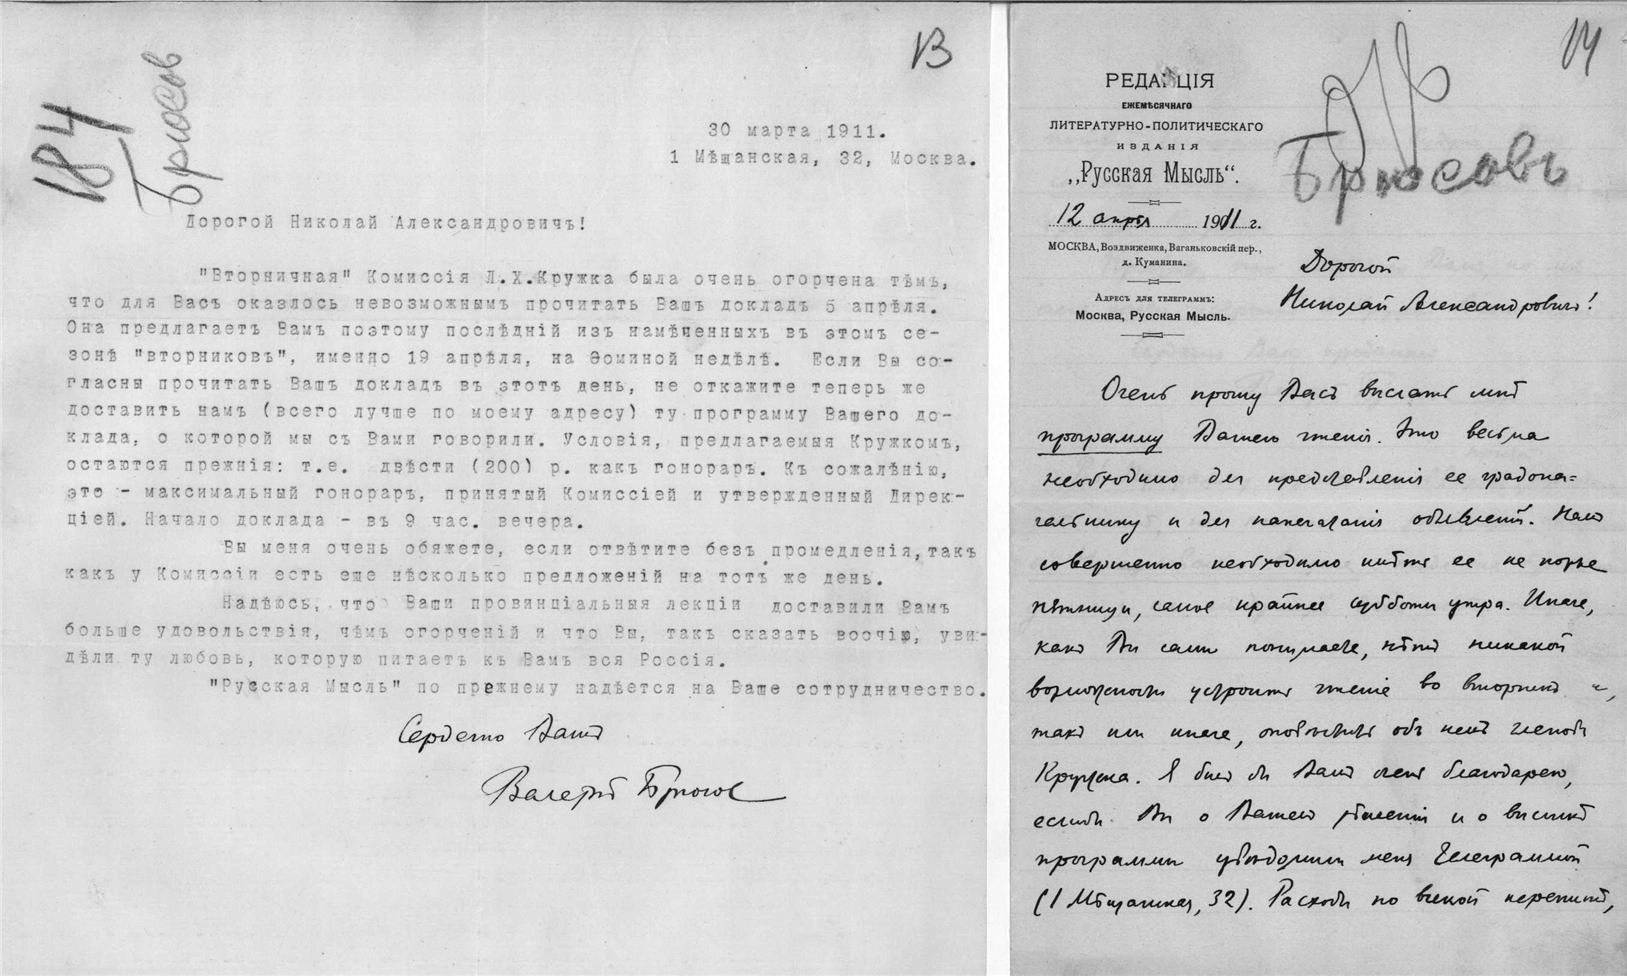 13
184
Брюсов
30 марта 1911.
1 Мѣщанская, 32, Москва.
Дорогой Николай Александровичъ!
"Вторничная" Комиссія Л.Х.Кружка была очень огорчена тѣмъ,
что для Васъ оказлось невозможнымъ прочитать Вашъ докладъ 5 апрѣля.
Она предлагаетъ Вамъ поэтому послѣдній изъ намѣченныхъ въ этомъ се-
зонѣ "вторниковъ", именно 19 апрѣля, на Ѳоминой недѣлѣ. Если Вы со-
гласны прочитать Вашъ докладъ въ этотъ день, не откажите теперь же
доставить намъ (всего лучше по моему адресу) ту программу Вашего до-
клада, о которой мы съ Вами говорили. Условія, предлагаемыя Кружкомъ,
остаются прежнія: т.е. двѣсти (200) р. какъ гонораръ. Къ сожалѣнію,
это - максимальный гонораръ, принятый Комиссіей и утвержденный Дирек-
ціей. Начало доклада - въ 9 час. вечера.
Вы меня очень обяжете, если отвѣтите безъ промедленія, такъ
какъ у Комиссіи есть еще нѣсколько предложеній на тотъ же день.
Надѣюсь, что Ваши провинціальныя лекціи доставили Вамъ
больше удовольствія, чѣмъ огорченій и что Вы, такъ сказать воочію, уви-
дѣли ту любовь, которую питаетъ къ Вамъ вся Россія.
"Русская Мысль" по прежнему надѣется на Ваше сотрудничество.
Сердечно Вашъ
Валерій Брюсов
14
РЕДАКЦІЯ
ЕЖЕМѢСЯЧНАГО
ЛИТЕРАТУРНО-ПОЛИТИЧЕСКАГО
ИЗДАНІЯ
„Русская Мысль“.
Брюсовъ
12 апрѣля 1911 г.
МОСКВА, Воздвиженка, Ваганьковскій пер.,
д. Куманина.
Адресъ для телеграммъ:
Москва, Русская Мысль.
Дорогой
Николай Александровичъ!
Очень прошу Васъ выслать мнѣ
программу Вашего чтенія. Это весьма
необходимо для представленія ее градона=
чальнику и для напечатанія объявленій. Намъ
совершенно необходимо имѣть ее не позже
пятницы, самое крайнее субботы утра. Иначе,
какъ Вы сами понимаете, нѣтъ никакой
возможности устроить чтеніе во вторникъ и,
такъ или иначе, оповѣстить объ немъ членовъ
Кружка. Я былъ бы Вамъ очень благодаренъ,
еслибъ Вы о Вашемъ рѣшеніи и о высылкѣ
программы увѣдомили меня телеграммой
(1 Мѣщанская, 32). Расходы по всякой перепискѣ,